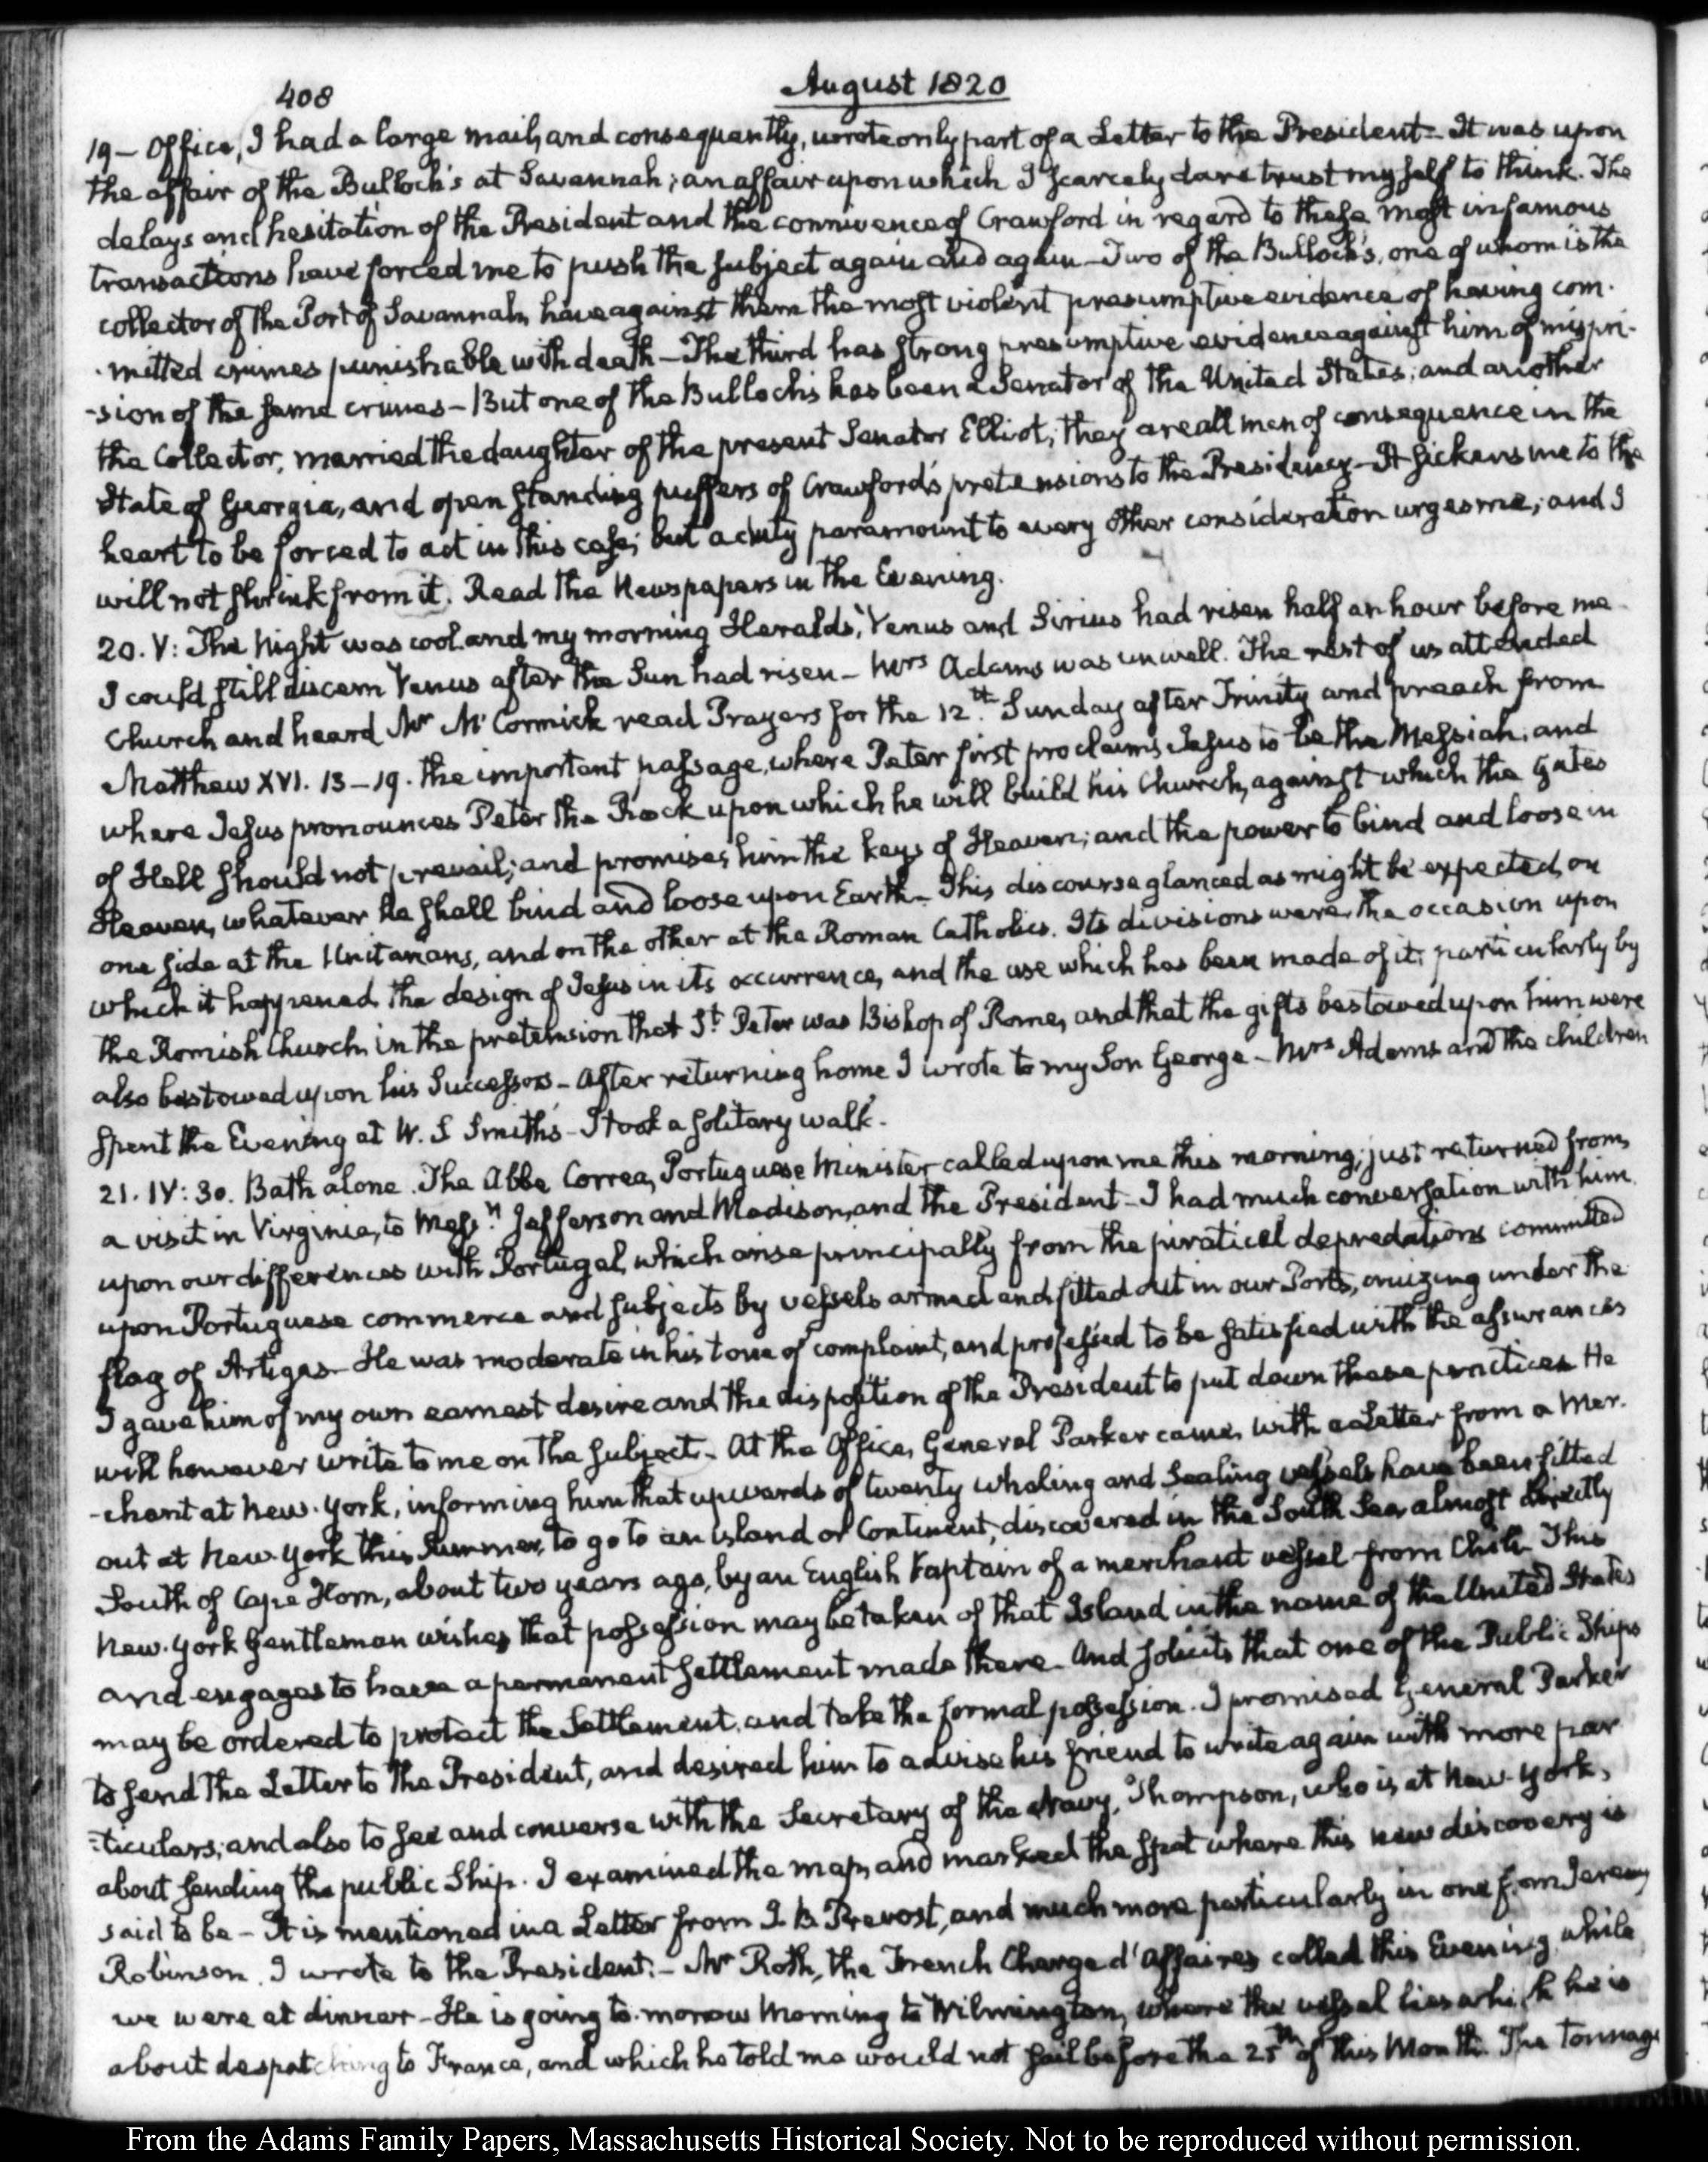 408
August 1820
19 – Office, I had a large mail, and consequently, wrote only part of a Letter to the President – It was upon
the affair of the Bulloch's at Savannah; an affair upon which I scarcely dare trust myself to think. The
delays and hesitation of the President and the connivence of Crawford in regard to these most infamous
transactions have forced me to push the subject again and again – Two of the Bulloch's, one of whom is the
collector of the Port of Savannah, have against them the most violent presumptive evidence of having com-
-mitted crimes punishable with death – The third has strong presumptive evidence against him of mispri-
-sion of the same crimes – But one of the Bulloch's has been a Senator of the United States; and another
the Collector, married the daughter of the present Senator Elliot; they are all men of consequence in the
State of Georgia, and open standing puffers of Crawford's pretensions to the Presidency – It sickens me to the
heart to be forced to act in this case; but a duty paramount to every other consideration urges me; and I
will not shrink from it. Read the Newspapers in the Evening.
20. V: The Night was cool. and my morning Heralds, Venus and Sirius had risen half an hour before me
I could still discern Venus after the Sun had risen – Mrs Adams was unwell. The rest of us attended
Church and heard Mr McCormick read Prayers for the 12th. Sunday after Trinity and preach from
Matthew XVI. 13–19. the important passage, where Peter first proclaims Jesus to be the Messiah; and
where Jesus pronounces Peter the Rock upon which he will build his Church, against which the gates
of Hell should not prevail; and promises him the keys of Heaven; and the power to bind and loose in
Heaven, whatever he shall bind and loose upon Earth – This discourse glanced as might be expected, on
one side at the Unitarians, and on the other at the Roman Catholics. Its divisions were, the occasion upon
which it happened, the design of Jesus in its occurrence, and the use which has been made of it; particularly by
the Romish Church, in the pretension that St Peter was Bishop of Rome, and that the gifts bestowed upon him were
also bestowed upon his Successors – After returning home I wrote to my Son George – Mrs Adams and the children
spent the Evening at W. S Smith's – I took a solitary walk.
21. IV: 30. Bath alone. The Abbe Correa, Portuguese Minister called upon me this morning; just returned from
a visit in Virginia, to Messrs Jefferson and Madison, and the President – I had much conversation with him
upon our differences with Portugal, which arise principally from the piratical depredations committed
upon Portuguese commerce and subjects by vessels armed and fitted out in our Ports, cruizing under the
flag of Artigas – He was moderate in his tone of complaint, and professed to be satisfied with the assurances
I gave him of my own earnest desire and the disposition of the President to put down these practices He
will however write to me on the subject – At the Office, General Parker came, with a Letter from a Mer-
-chant at New-York, informing him that upwards of twenty whaling and Sealing vessels have been fitted
out at New-York this Summer, to go to an island or Continent, discovered in the South Sea, almost directly
South of Cape Horn, about two years ago, by an English Captain of a merchant vessel from Chili – This
New-York Gentleman wishes that possession may be taken of that Island in the name of the United States
and engages to have a permanent settlement made there – And solicits that one of the Public Ships
may be ordered to protect the Settlement, and take the formal possession. I promised General Parker
to send the Letter to the President, and desired him to advise his friend to write again with more par-
-ticulars; and also to see and converse with the Secretary of the Navy, Thompson, who is at New-York,
about sending the public Ship. I examined the map, and marked the spot where this new discovery is
said to be – It is mentioned in a Letter from J. B. Prevost, and much more particularly in one from Jeremy
Robinson. I wrote to the President. – Mr Roth, the French Chargé d'Affaires called this Evening, while
we were at dinner – He is going to-morrow Morning to Wilmington, where the vessel lies which he is
about despatching to France, and which he told me would not sail before the 25th of this Month. The Tonnage
From the Adams Family Papers, Massachusetts Historical Society. Not to be reproduced without permission.